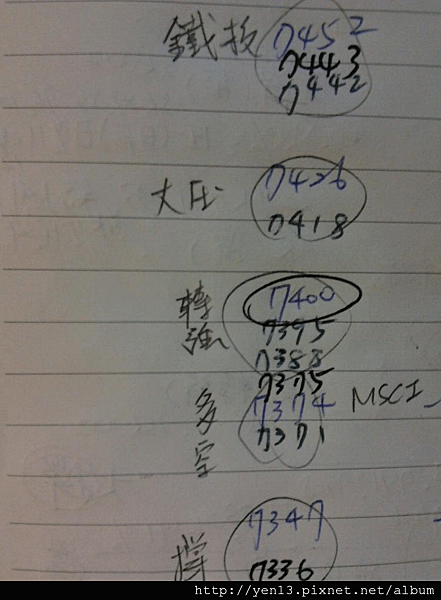 鐵板 7452
7443
7442
大压 7426
7418
轉強 7400
7395
7388
7375
多空 7374 MSCI
7371
7347
撐 7336
http://yen13.pixnet.net/album